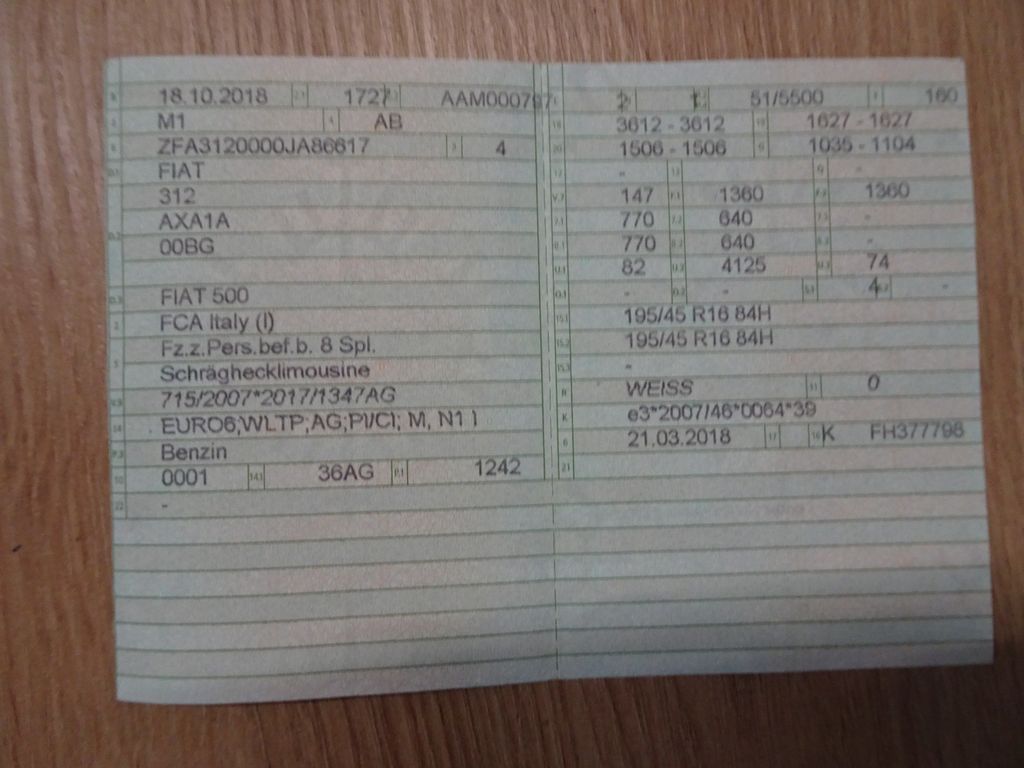 18.10.2018 1727 AAM000797
M1 AB
ZFA3120000JA86617 4
FIAT
312
AXA1A
00BG
FIAT 500
FCA Italy (I)
Fz.z.Pers.bef.b. 8 Spl.
Schräghecklimousine
715/2007*2017/1347AG
EURO6;WLTP;AG;PI/CI; M, N1 I
Benzin
0001 14.1 36AG P.1 1242
22 -
51/5500 160
3612 - 3612 1627 - 1627
1506 - 1506 1035 - 1104
- -
147 1360 1360
770 640 -
770 640 -
82 4125 74
- - 4 -
15.1 195/45 R16 84H
15.2 195/45 R16 84H
15.3 -
R WEISS 11 0
K e3*2007/46*0064*39
6 21.03.2018 17 16 K FH377798
21